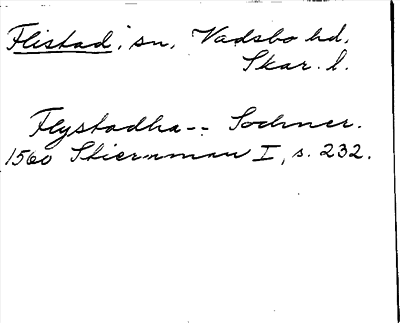 Flistad, sn, Vadsbo hd,
Skar. l.
Flystadha-- Sochner.
1560 Stiernman I, s. 232.